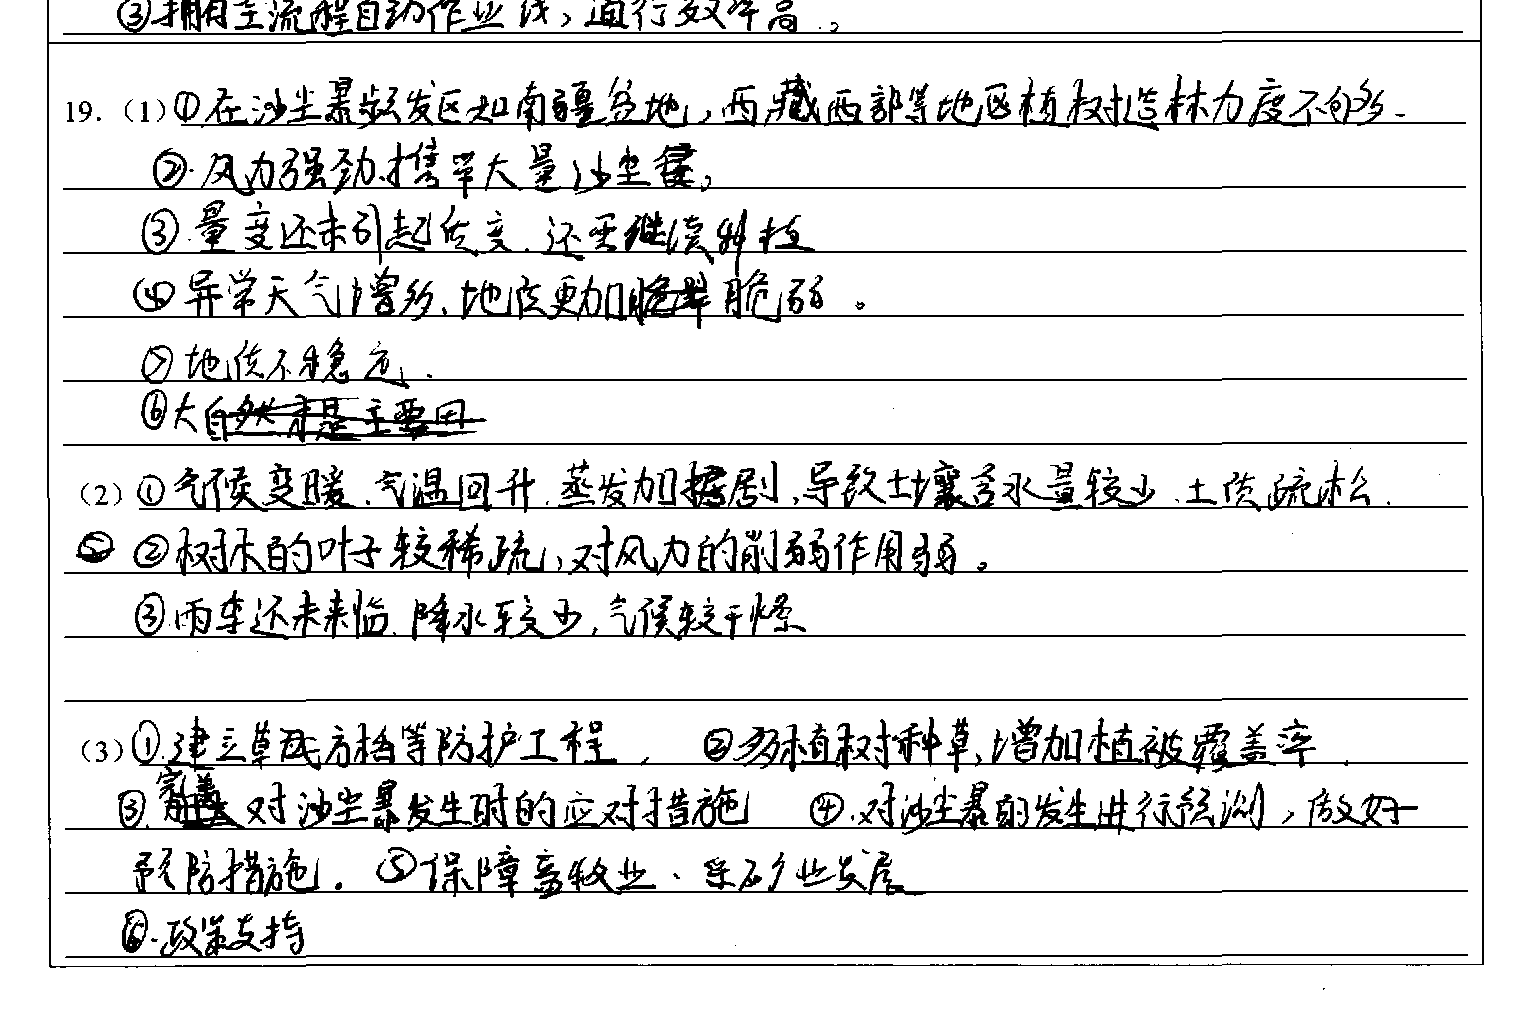 ③拥有全流程自动作业线,通行效率高。
19.(1)①在沙尘暴频发区如南疆盆地,西藏西部等地区植树造林力度不够多.
②.风力强劲.携带大量沙尘
③.量变还未引起质变.还需继续种植
④异常天气增多、地质更加脆弱。
⑤地质不稳定.
⑥大
(2)①气候变暖.气温回升.蒸发加剧,导致土壤含水量较少、土质疏松.
②树木的叶子较稀疏,对风力的削弱作用弱。
③雨季还未来临.降水较少,气候较干燥
(3)①建立草方格等防护工程, ②多植树种草,增加植被覆盖率.
③.完善对沙尘暴发生时的应对措施 ④.对沙尘暴的发生进行预测,做好
预防措施. ⑤保障畜牧业、采矿业发展
⑥.政策支持